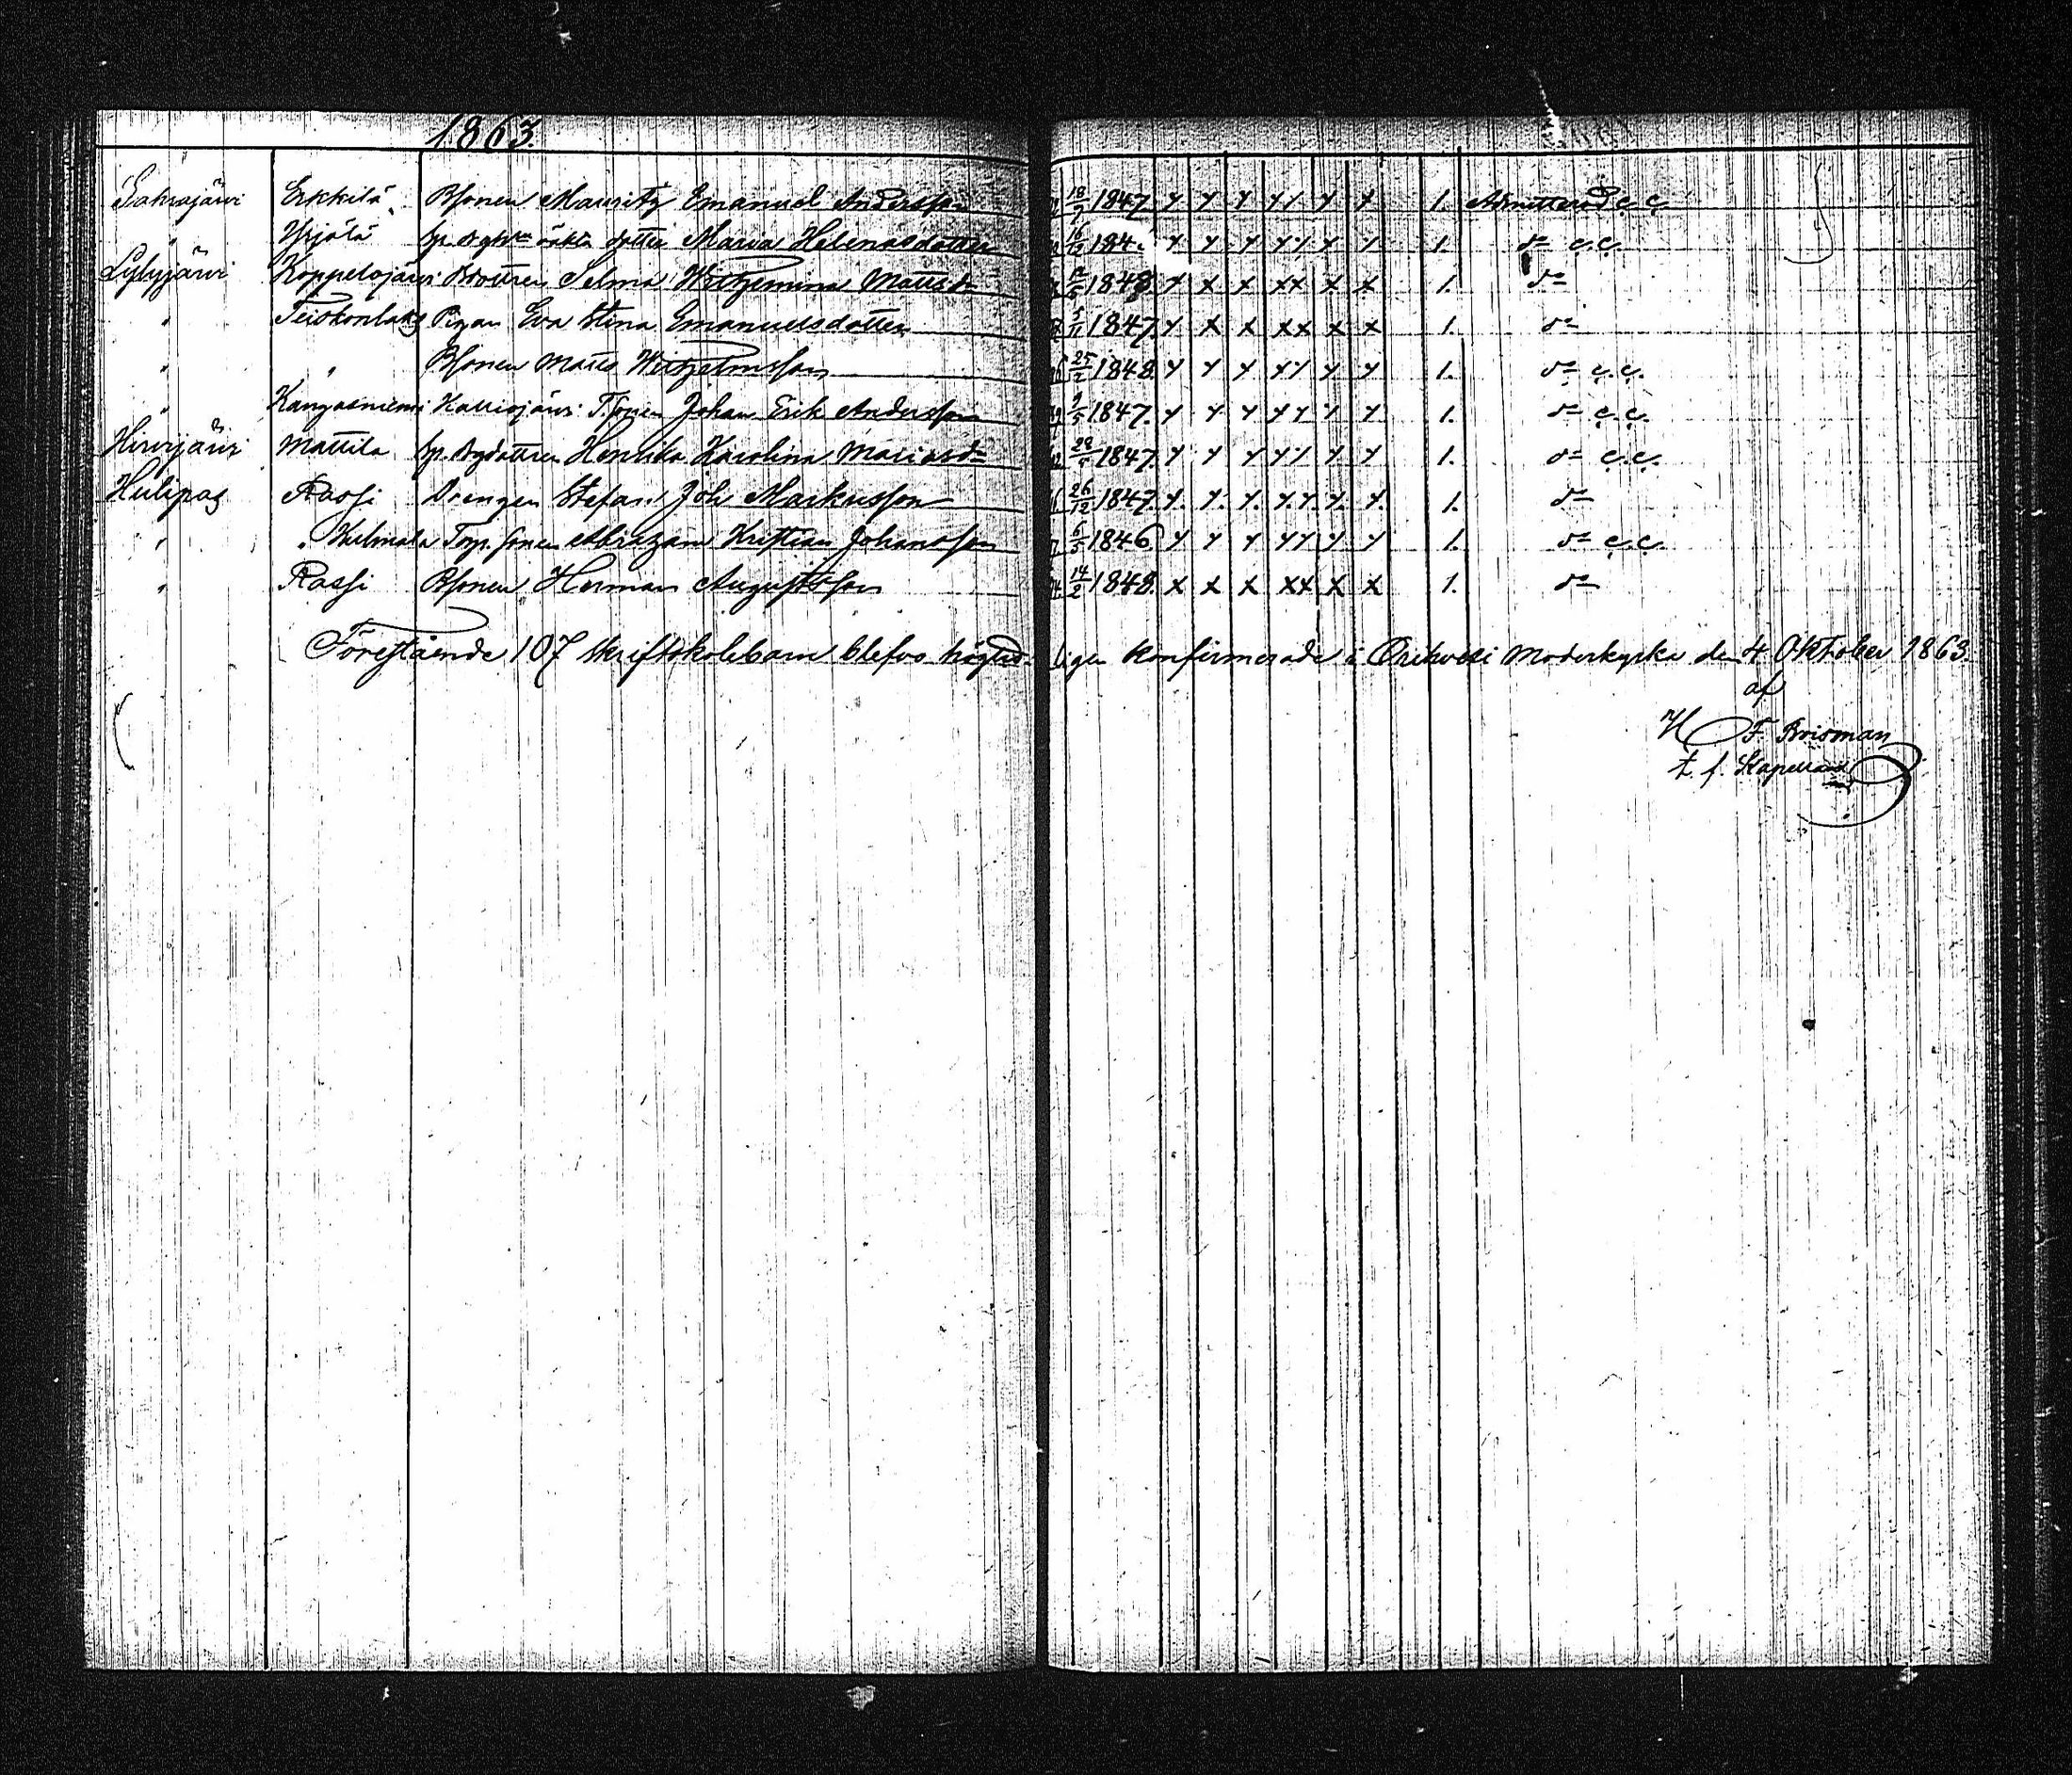 1863.
Sakrajärvi Erkkilä Bsonen Mauritz Emanuel Andersson 18/7 1847 y y y y y y y 1. Admitterad c.c.
" Yrjölä dotter Maria Helenasdotter 16/12 184 y y y y y y y 1. do c.c.
Lylyjärvi Koppelojärvi Bdottren Selma Wilhelmina Mattsdr 1848 y x x x x x x 1. do
" Teiskonlaks Pigan Eva Stina Emanuelsdotter 5/11 1847. y x x x x x x 1. do
" " Bsonen Matts Wilhelmsson 25/2 1848. y y y y y y y 1. do c.c.
" Kangasniemi Kalliojärvi T.sonen Johan Erik Andersson 1847. y y y y y y y 1. do c.c.
Hirvijärvi Mattila Henrika Karolina Mariasdr 28/ 1847. y y y y y y y 1. do c.c.
Hulipas Rassi Drengen Stefan Joh Markusson 26/12 1847. y. y. y. y. y. y. y. 1. do
" Kulmala Torp. sonen Abraham Kristian Johansson 6/5 1846. y y y y y y y 1. do c.c.
" Rassi Bsonen Herman Augustsson 14/2 1848. x x x x x x x 1. do
Förestående 107 skriftskolebarn blefvo högtidligen konfirmerade i Orihvesi Moderkyrka den 4 Oktober 1863.
af
H F. Brisman
t. f. Kapellan